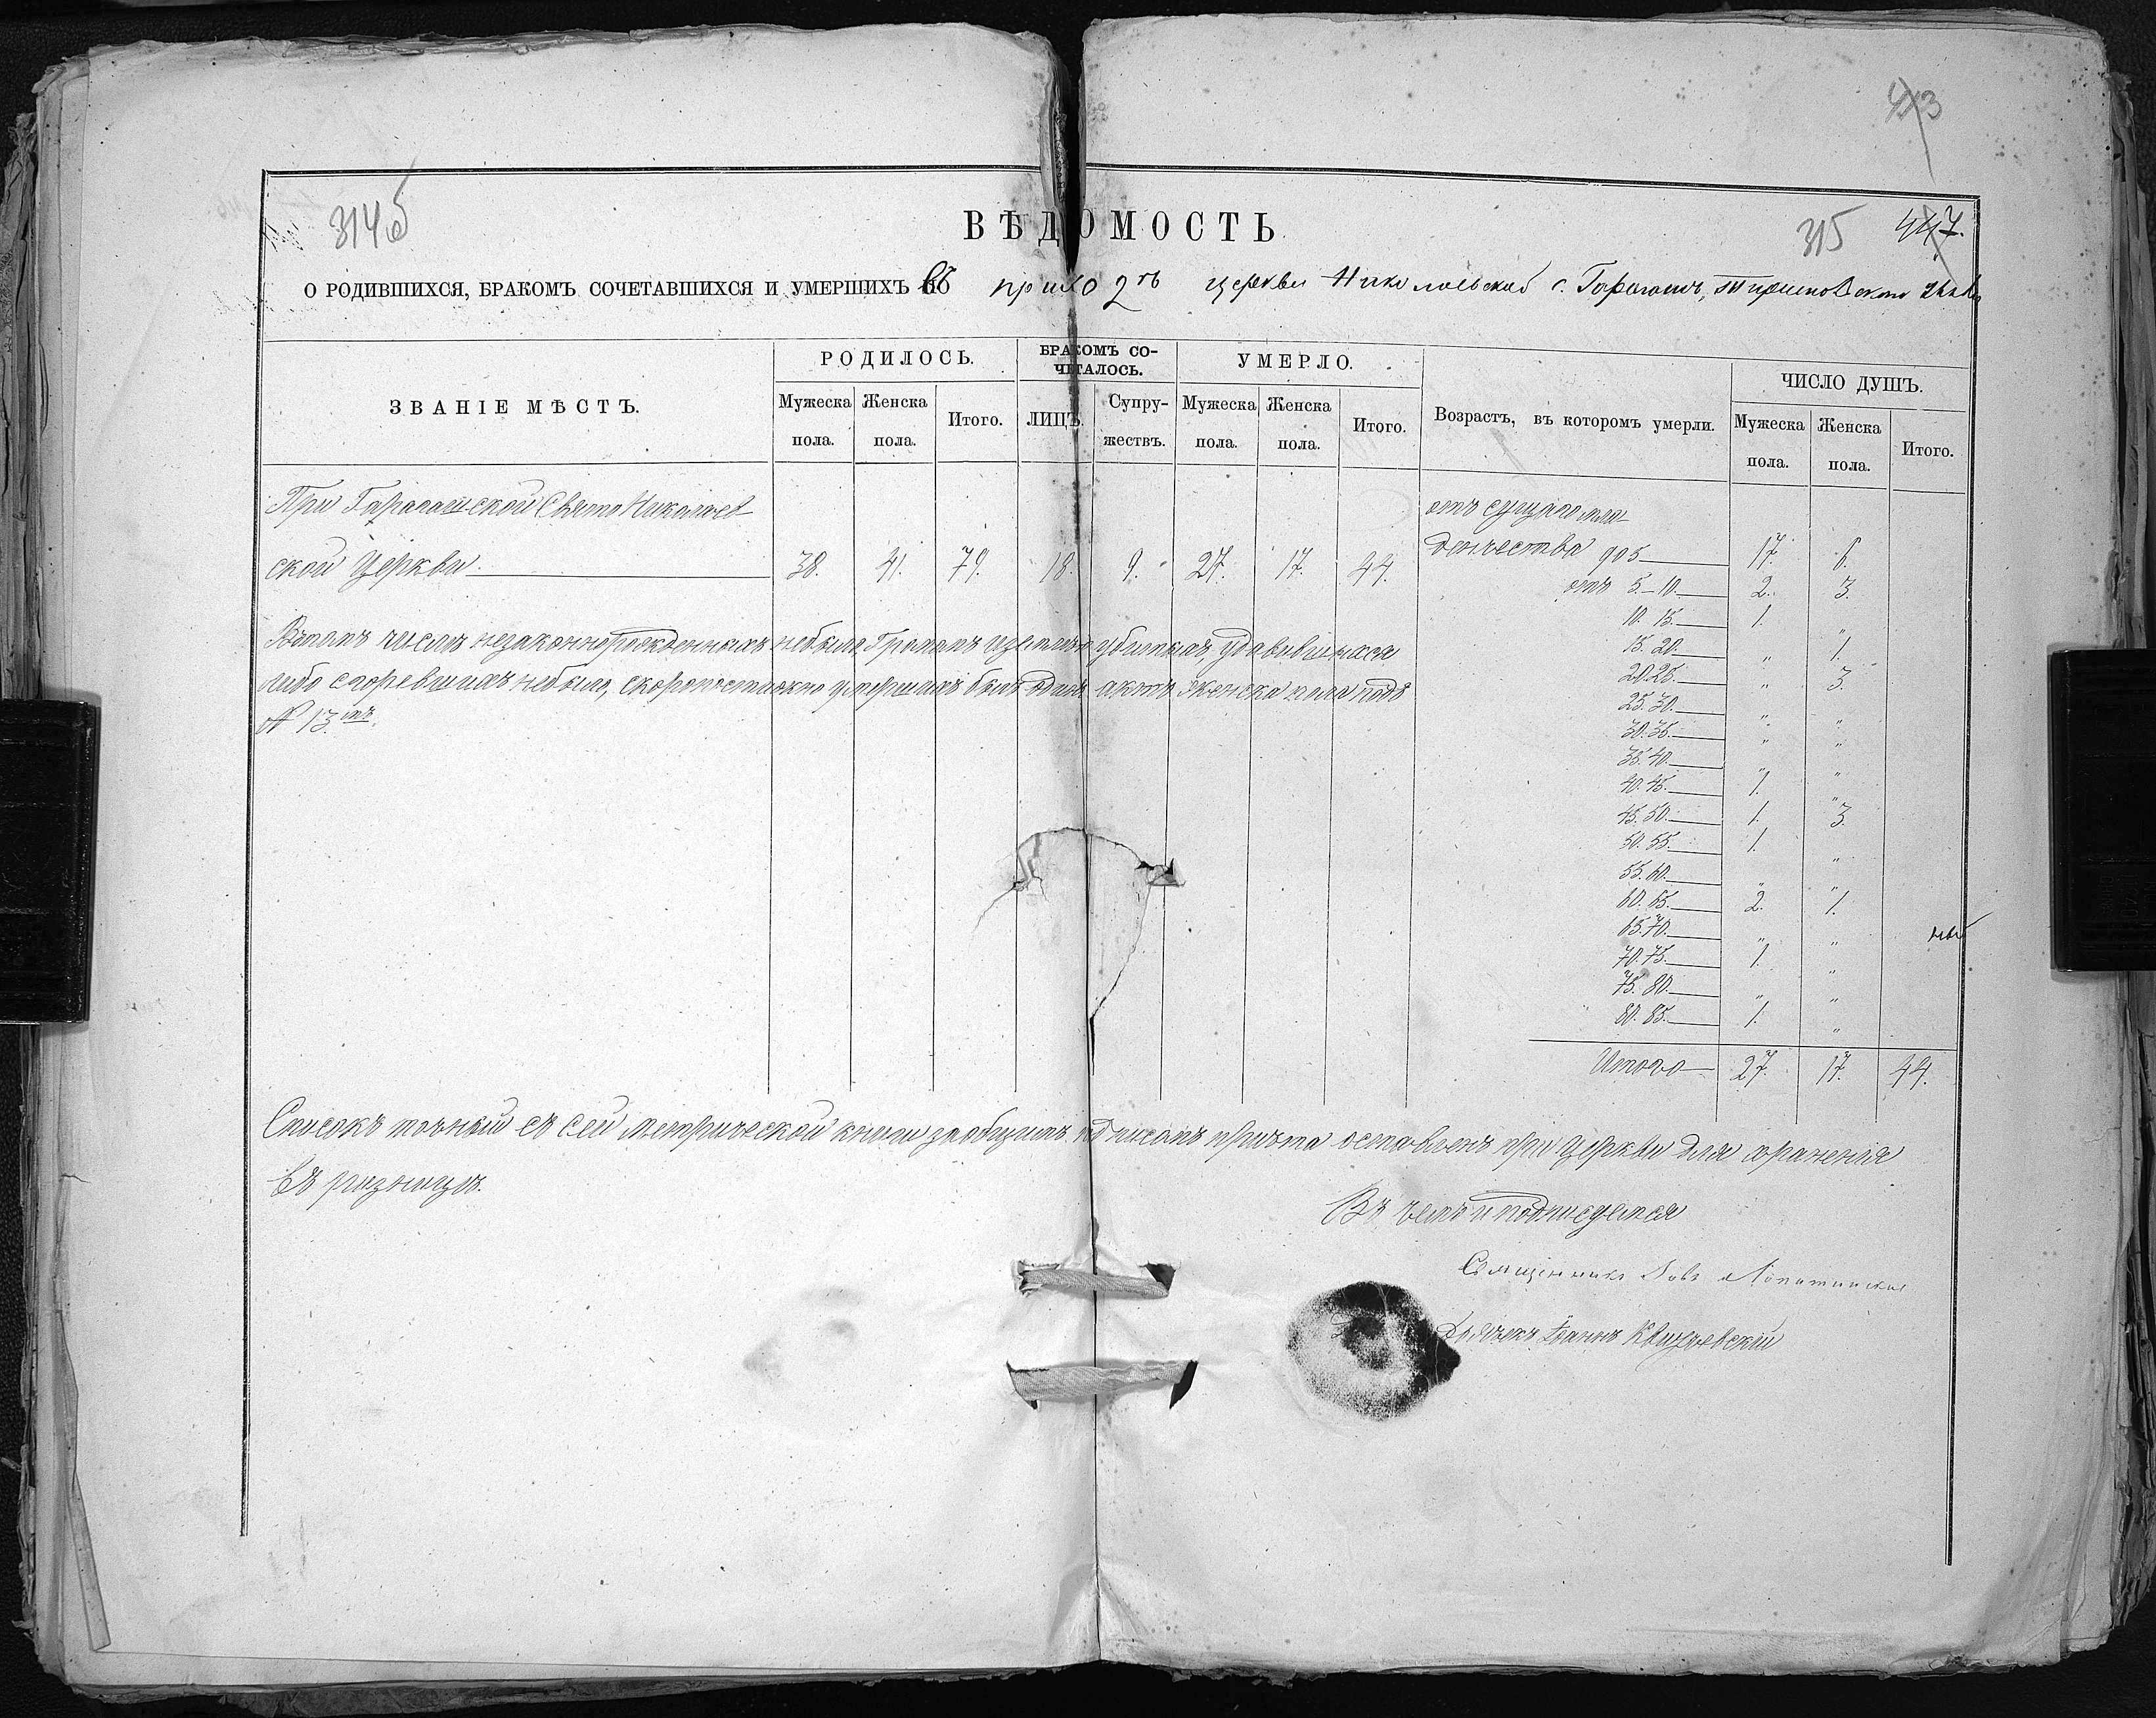 443
314б
ВѢДОМОСТЬ
315 447.
О РОДИВШИХСЯ, БРАКОМЪ СОЧЕТАВШИХСЯ И УМЕРШИХЪ въ приходѣ церкви Николаевской с. Гарагашъ,
ЗВАНІЕ МѢСТЪ.
РОДИЛОСЬ.
Мужеска пола.
Женска пола.
Итого.
БРАКОМЪ СО-
ЧЕТАЛОСЬ.
ЛИЦЪ.
Супру-
жествъ.
УМЕРЛО.
Мужеска пола.
Женска пола.
Итого.
Возрастъ, въ которомъ умерли.
ЧИСЛО ДУШЪ.
Мужеска пола.
Женска пола.
Итого.
При Гарагашской Свято Николаев-
ской Церкви 38. 41. 79. 18. 9. 27. 17. 44.
Въ томъ числѣ незаконнорожденныхъ небыло, убитыхъ, удавившихся
либо сгоревшихъ небыло, скоропостижно умершихъ былъ одинъ актъ женска пола подъ
№ 13.мъ.
отъ сущаго мла-
денчества до 5 17. 6.
отъ 5.-10. 2. 3.
10. 15. 1. "
15. 20. " 1.
20. 25. " 3.
25. 30. " "
30. 35. " "
35. 40. " "
40. 45. 1. "
45. 50. 1. 3.
50. 55. 1. "
55. 60. " "
60. 65. 2. 1.
65. 70. " "
70. 75. 1. "
75. 80. " "
80. 85. 1. "
Итого 27. 17. 44.
Списокъ точный съ сей метрической книги за общимъ подписомъ причта оставленъ при Церкви для храненія
въ ризницѣ.
Въ чемъ и подписуемся
Священникъ Іовъ Лопатинскій
Дьячекъ Іоаннъ